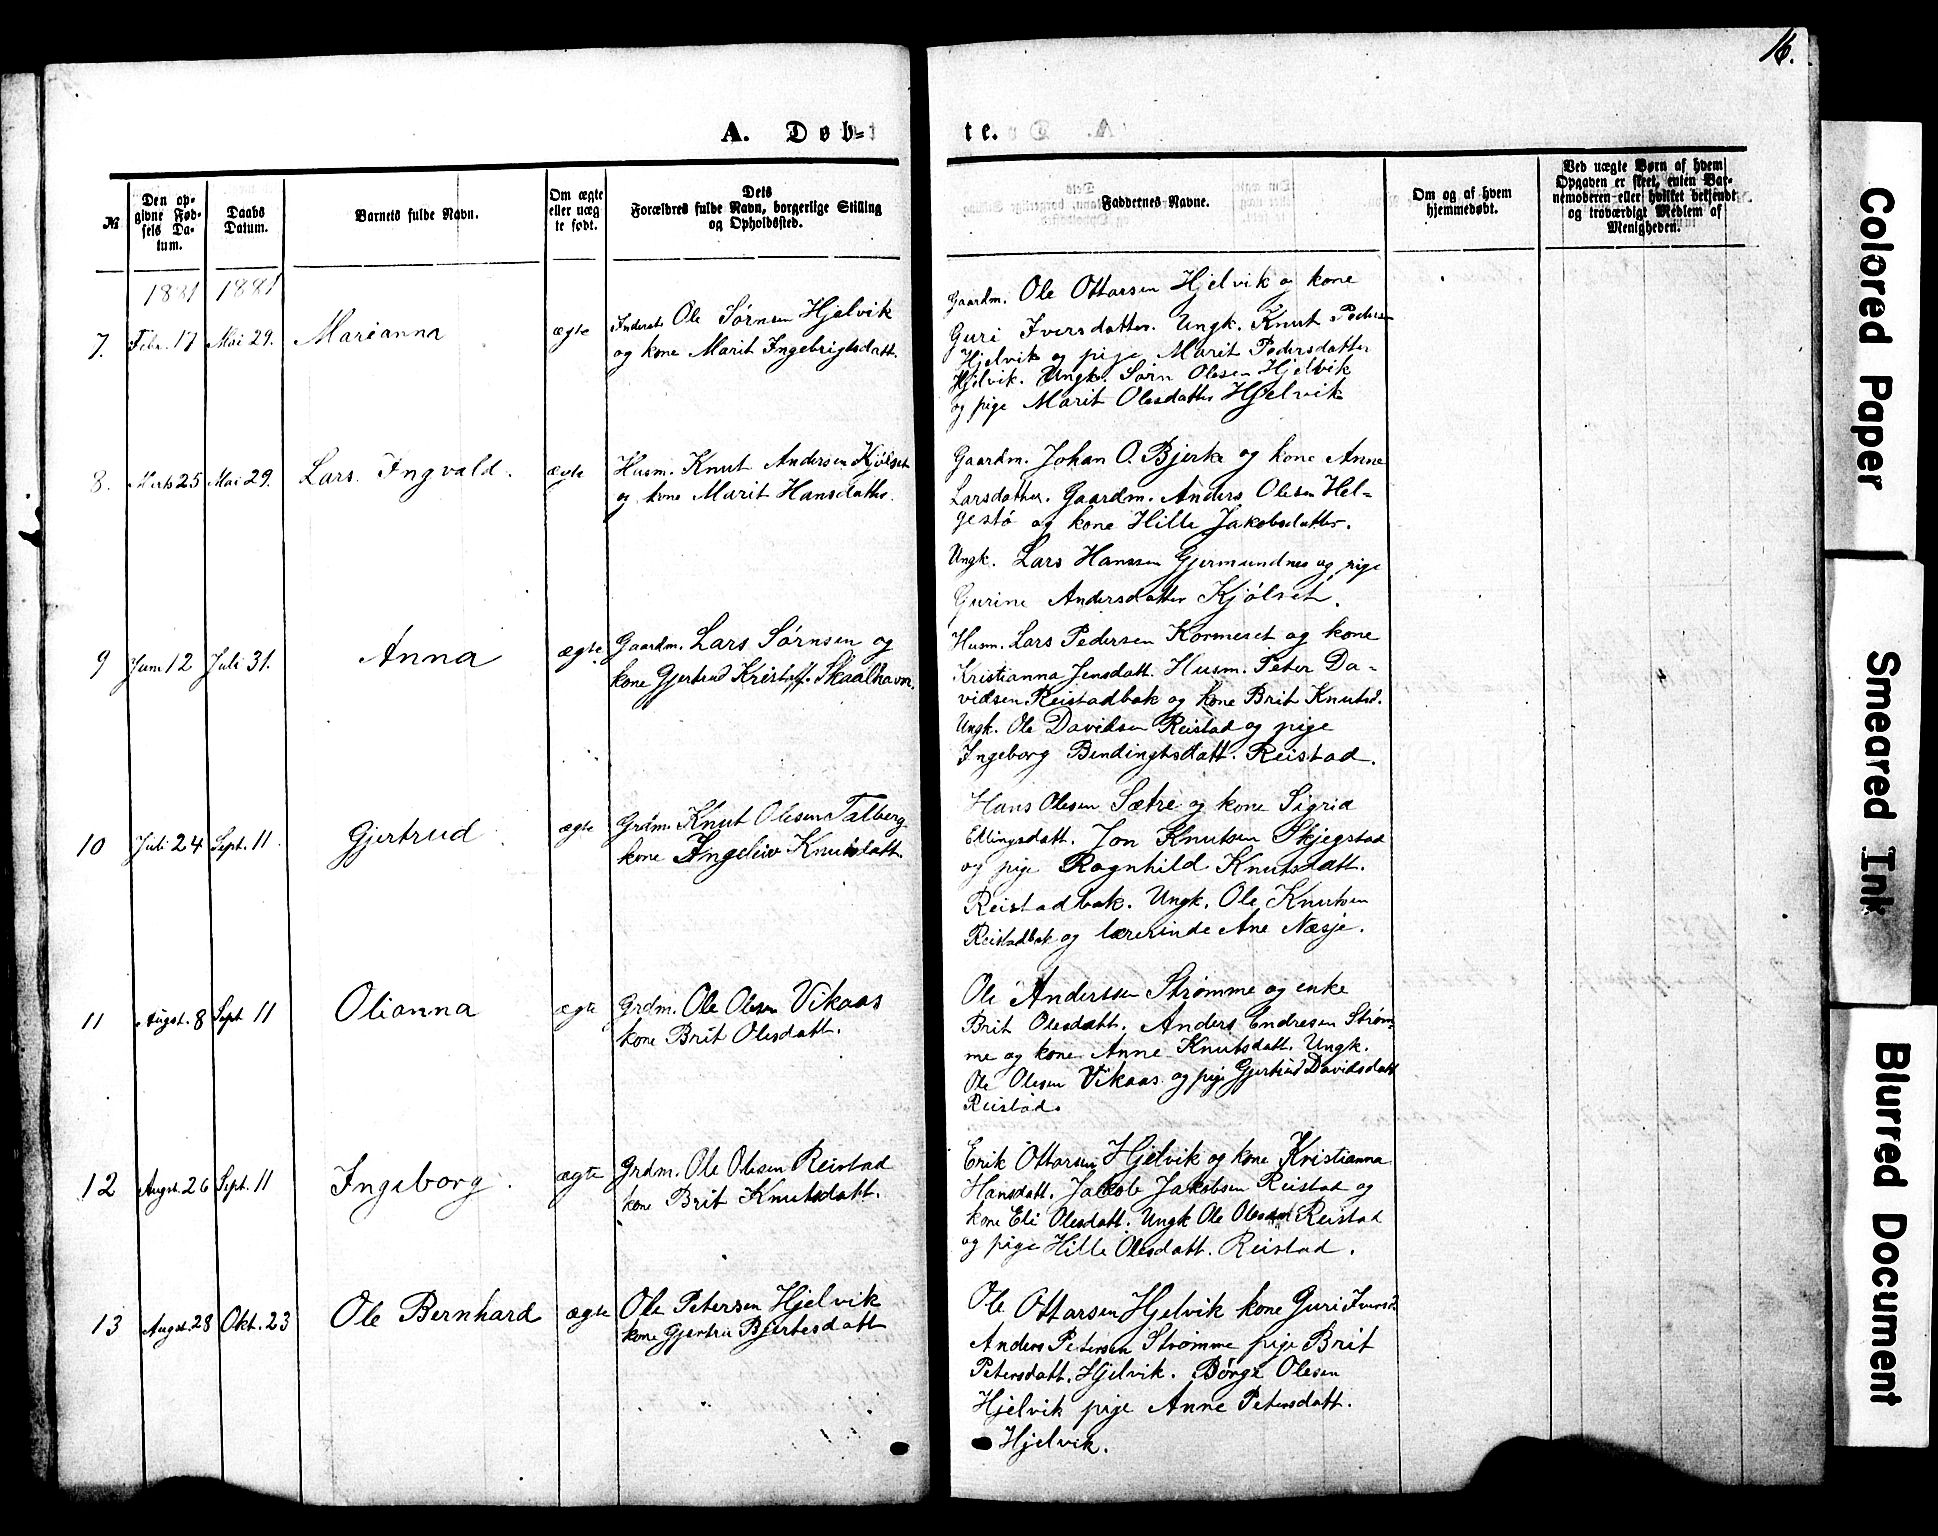 16.
A. Døb=
te.
№
Den op-
givne Fød-
sels Da-
tum.
Daabs
Datum.
Barnets fulde Navn.
Om ægte
eller uæg
te født.
Dets
Forældres fulde Navn, borgerlige Stilling
og Opholdssted.
Faddernes Navne.
Om og af hvem
hjemmedøbt.
Ved uægte Børn af hvem
Opgaven er skeet, enten Bar-
nemoderen eller hvilket betjendt
og troværdigt Medlem af
Menigheden.
1881 1881
7. Febr. 17 Mai 29. Marianna ægte
Inderst Ole Sørnsen Hjelvik
og kone Marit Ingebrigtsdatt.
Gaardm. Ole Ottarsen Hjelvik og kone
Guri Iversdatter. Ungk. Knut Peders-
Hjelvik og pige Marit Pedersdatter
Hjelvik. Ungk. Sørn Olesen Hjelvik
og pige Marit Olesdatter Hjelvik
8. Marts 25 Mai 29. Lars Ingvald. ægte
Husm. Knut Andersen Kjölset
og kone Marit Hansdatter.
Gaardm. Johan O. Bjerke og kone Anne
Larsdatter. Gaardm. Anders Olesen Hel-
gestø og kone Hille Jakobsdatter.
Ungk. Lars Hanssen Gjermundnes og pige
Gurine Andersdatter Kjölset.
9 Juni 12 Juli 31. Anna ægte.
Gaardm. Lars Sørnsen og
kone Gjertrud Kristoff. Skaalhavn.
Husm. Lars Pedersen Kormeset og kone
Kristianna Jensdatt. Husm. Peter Da-
vidsen Reistadbak og kone Brit Knutsd.
Ungk. Ole Davidsen Reistad og pige
Ingeborg Bendingtsdatt. Reistad.
10 Juli 24 Sept. 11. Gjertrud ægte
Grdm. Knut Olesen Talberg
kone Ingeleiv Knutsdatt.
Hans Olesen Sætre og kone Sigrid
Ellingsdatt. Jon Knutsen Skjegstad
og pige Ragnhild Knutsdatt.
Reistadbak. Ungk. Ole Knutsen
Reistadbak og lærerinde Ane Næsje.
11 Augst. 8 Sept 11 Olianna ægte
Grdm. Ole Olesen Vikaas
kone Brit Olesdatt.
Ole Anderssen Strømme og enke
Brit Olesdatt. Anders Endresen Strøm-
me og kone Anne Knutsdatt. Ungk.
Ole Olesen Vikaas og pige Gjertrud Davidsdatt
Reistad.
12 Augst. 26 Sept. 11 Ingeborg. ægte
Grdm. Ole Olesen Reistad
kone Brit Knutsdatt.
Erik Ottarsen Hjelvik og kone Kristianna
Hansdatt. Jakob Jakobsen Reistad og
kone Eli Olesdatt. Ungk Ole Olesen Reistad
og pige Hille Olesdatt. Reistad.
13 Augst. 28 Okt. 23 Ole Bernhard ægte
Ole Petersen Hjelvik
kone Gjertru Bjertesdatt
Ole Ottarsen Hjelvik kone Guri Iversd.
Anders Petersen Strømme pige Brit
Petersdatt. Hjelvik. Börge Olesen
Hjelvik pige Anne Petersdatt.
Hjelvik.
Colored Paper
Smeared Ink
Blurred Document